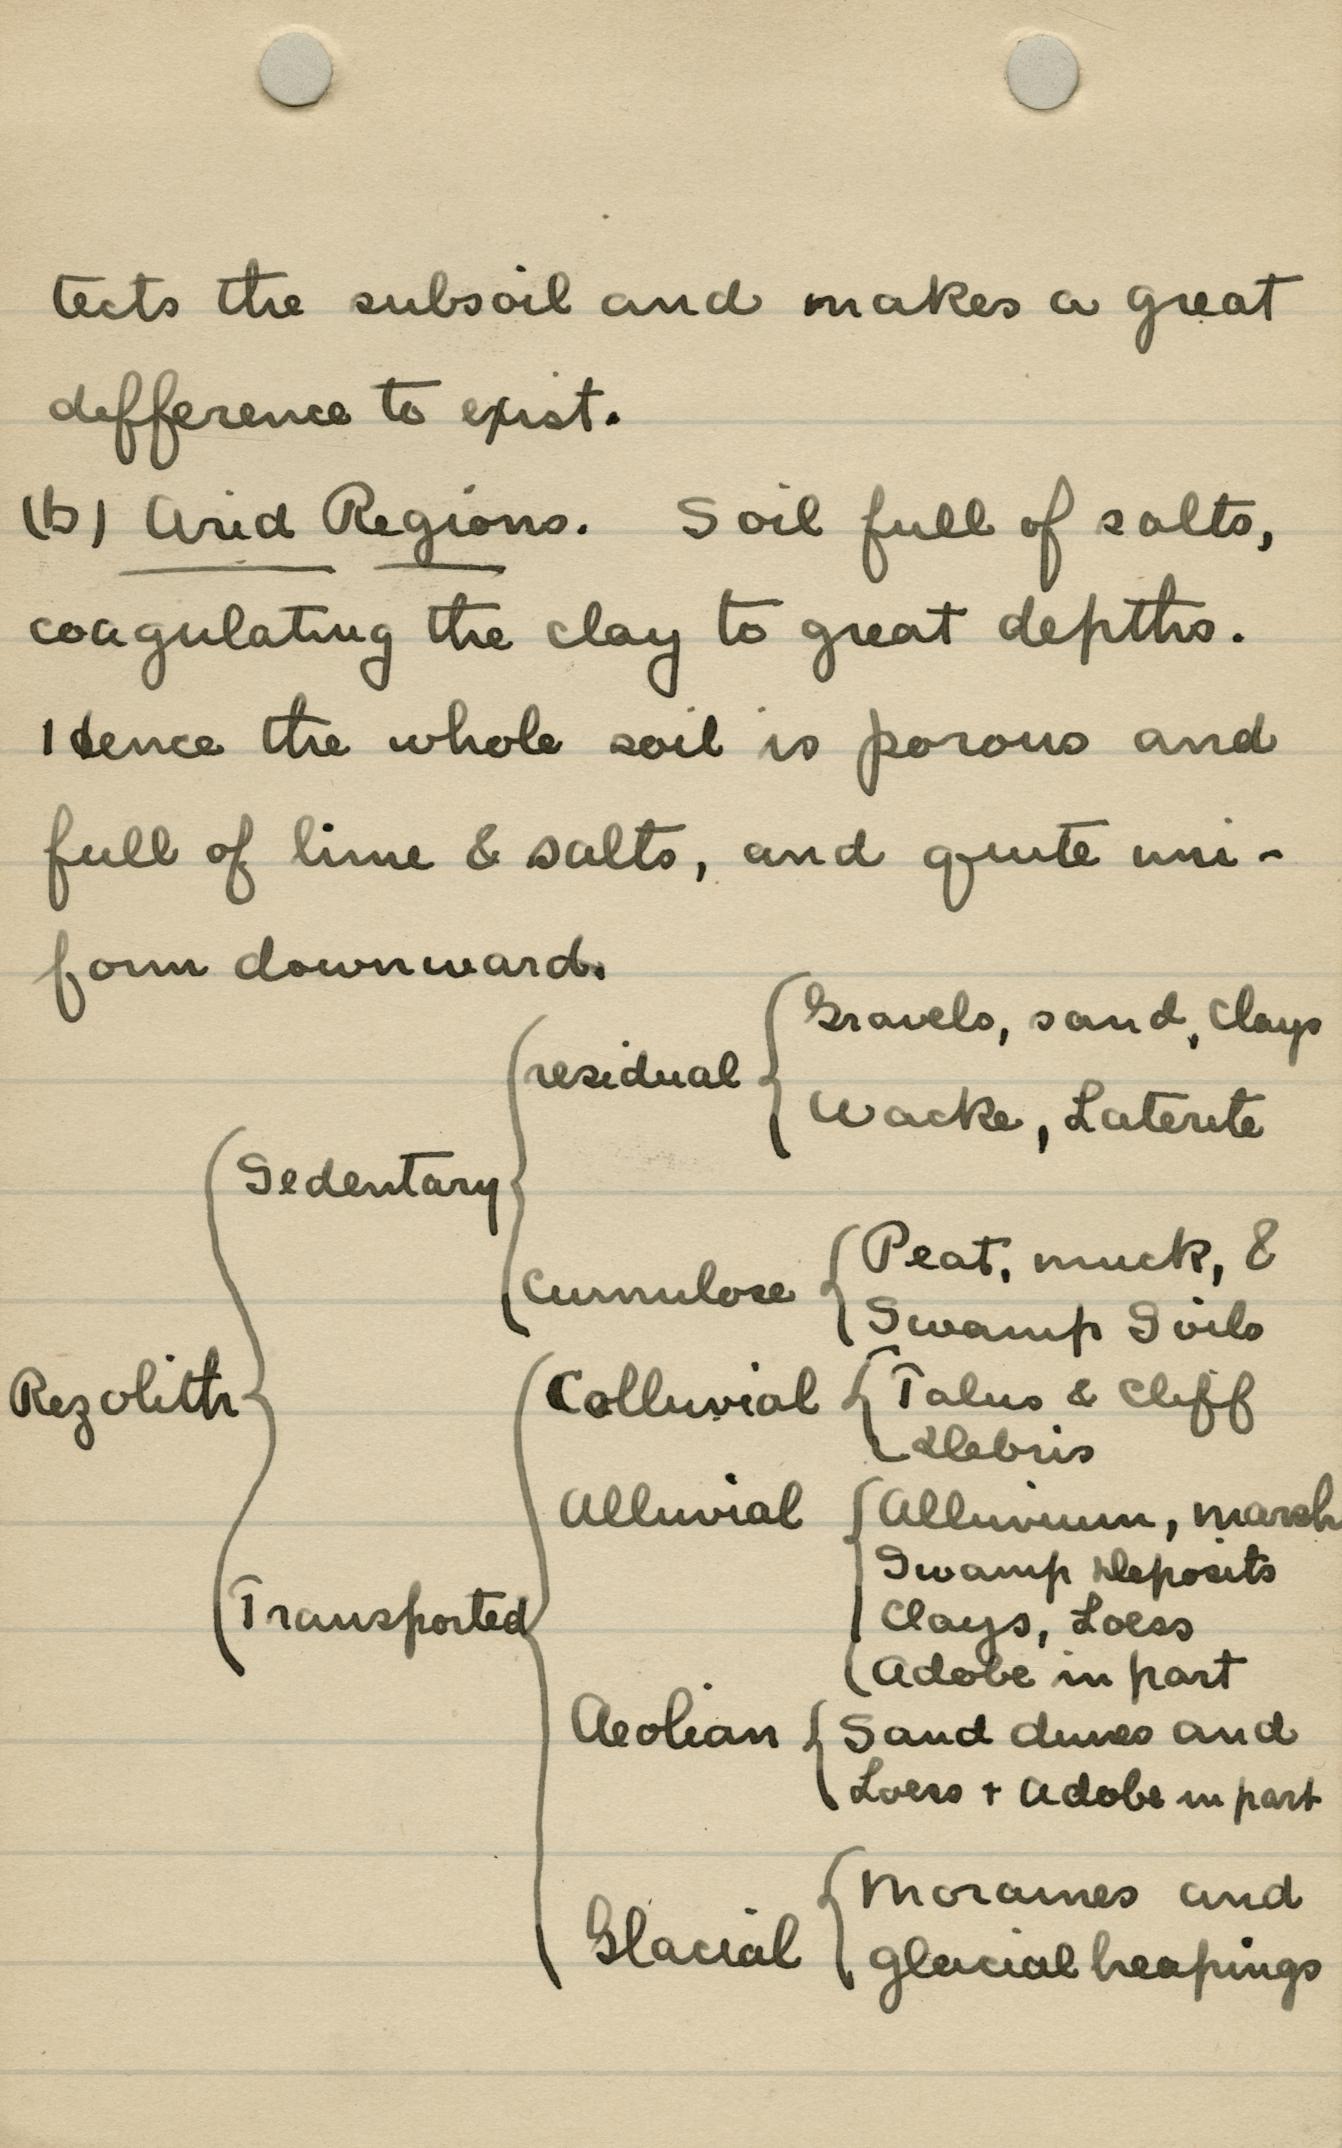 tects the subsoil and makes a great
difference to exist.
(b) Arid Regions. Soil full of salts,
coagulating the clay to great depths.
Hence the whole soil is porous and
full of lime & salts, and quite uni-
form downward.
Gravels, sand, Clays
residual
Wacke, Laterite
Sedentary
Peat, muck, &
Cumulose
Swamp Soils
Rezolith
Colluvial
Talus & Cliff
Debris
Alluvial
Alluvium, marsh
Swamp Deposits
Clays, Loess
Transported
Adobe in part
Aeolian
Sand dunes and
Loess + Adobe in part
Moraines and
Glacial
glacial heapings